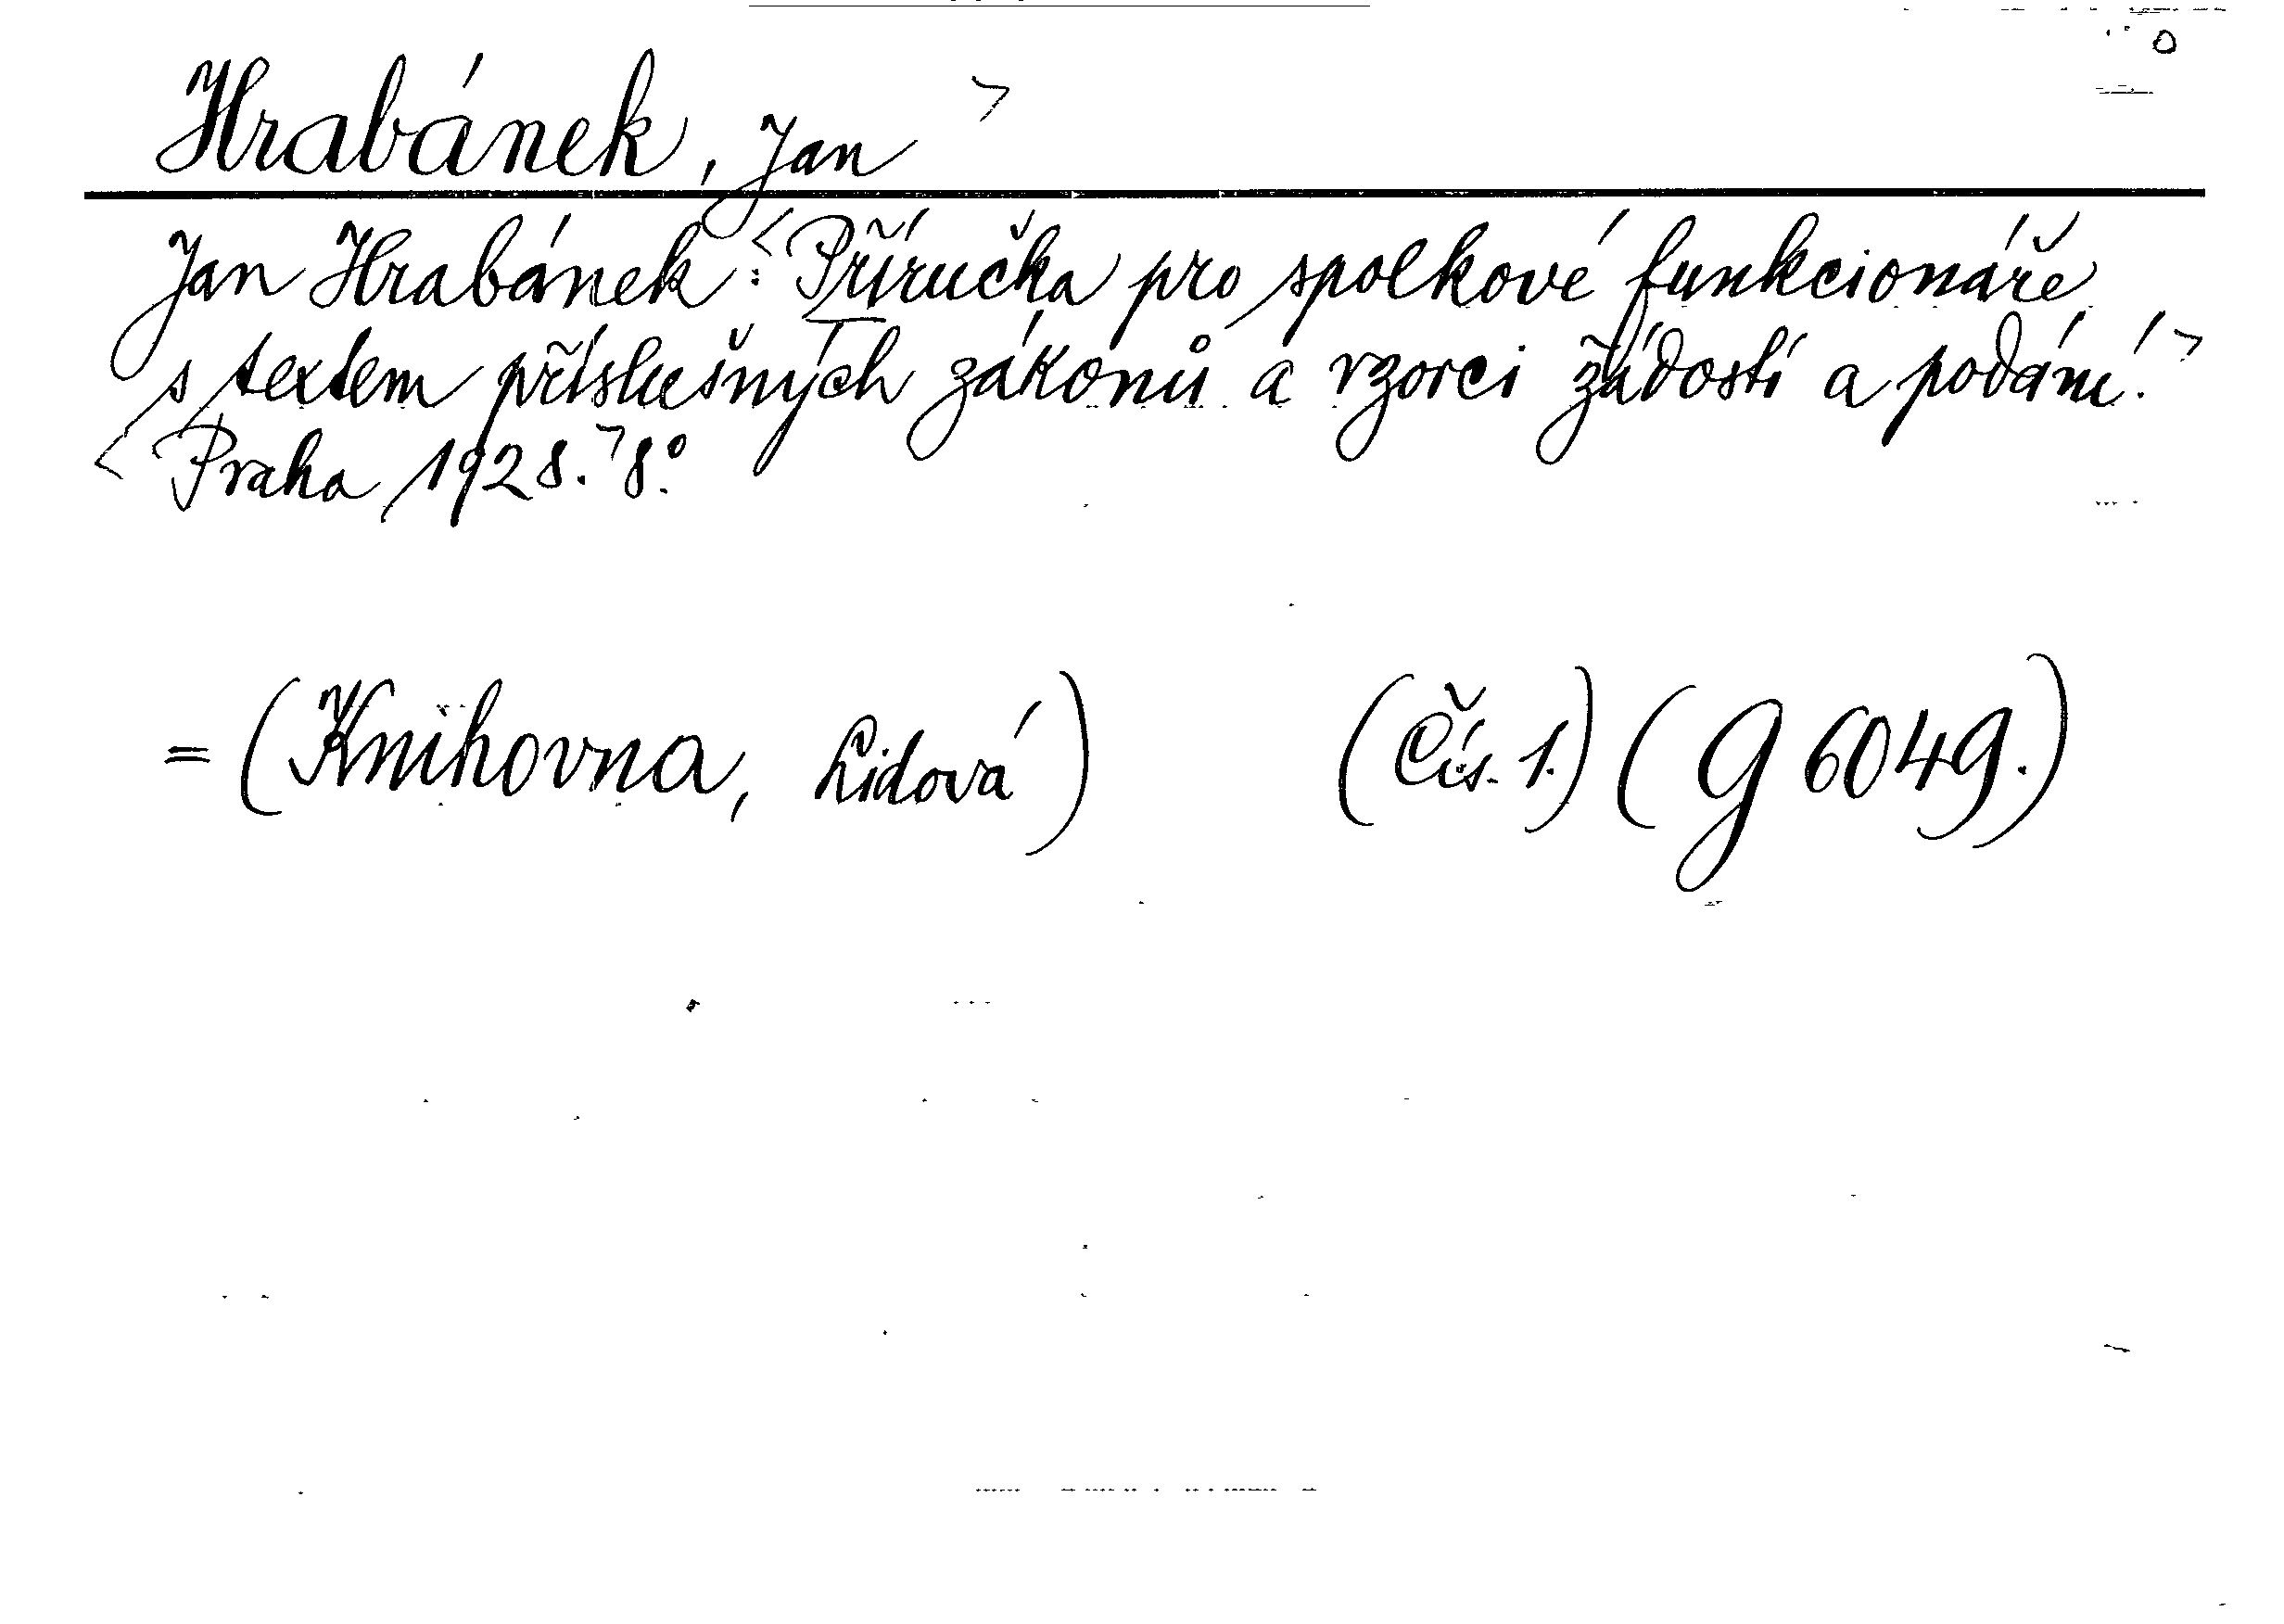 Hrabánek, Jan >
Jan Hrabánek: <Příručka pro spolkové funkcionáře
s textem příslušných zákonů a vzorci žádostí a podání.>
<Praha, 1928.> 8°.
= (Knihovna, Lidová) (Čís. 1.) (G 6049.)